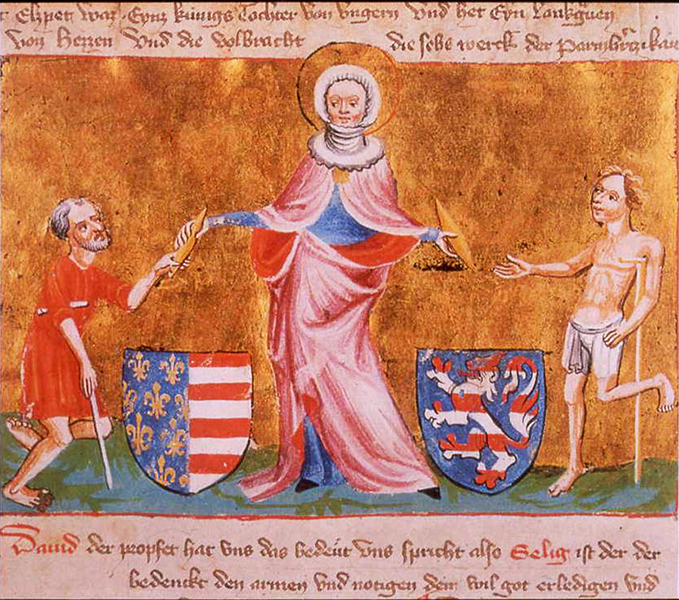 Elzpet waz Eynz künigs Tochter von vngern vnd het Eyn Lantgrauen
von Hezzen vnd die volbracht die sehs werck der parmhrtzikait
Dauid der propfet hat vns daz bedeut vns spricht also Selig ist der der
bedenckt den armen vnd notigen dem wil got erledigen vnd